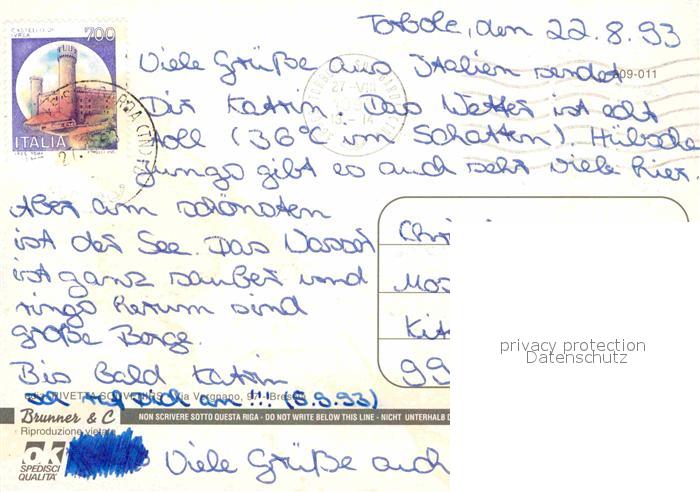 Torbole, den 22.8.93
CASTELLO DI IVREA 700
Viele Grüße aus Italien sendet
09-011
27-VIII
Dir Katrin. Das Wetter ist echt
toll (36°C im Schatten). Hübsche
ITALIA
Jungs gibt es auch sehr viele hier.
Aber am schönsten
ist der See. Das Wasser
ist ganz sauber und
rings herum sind
große Berge.
Bis bald Katrin
Ich ruf dich an!!! (8.9.93)
Via Vergnano, 97 - Brescia
Brunner & C
NON SCRIVERE SOTTO QUESTA RIGA - DO NOT WRITE BELOW THIS LINE - NICHT UNTERHALB D
Riproduzione vietata
ok
SPEDISCI
QUALITA'
Viele Grüße auch
99
privacy protection
Datenschutz